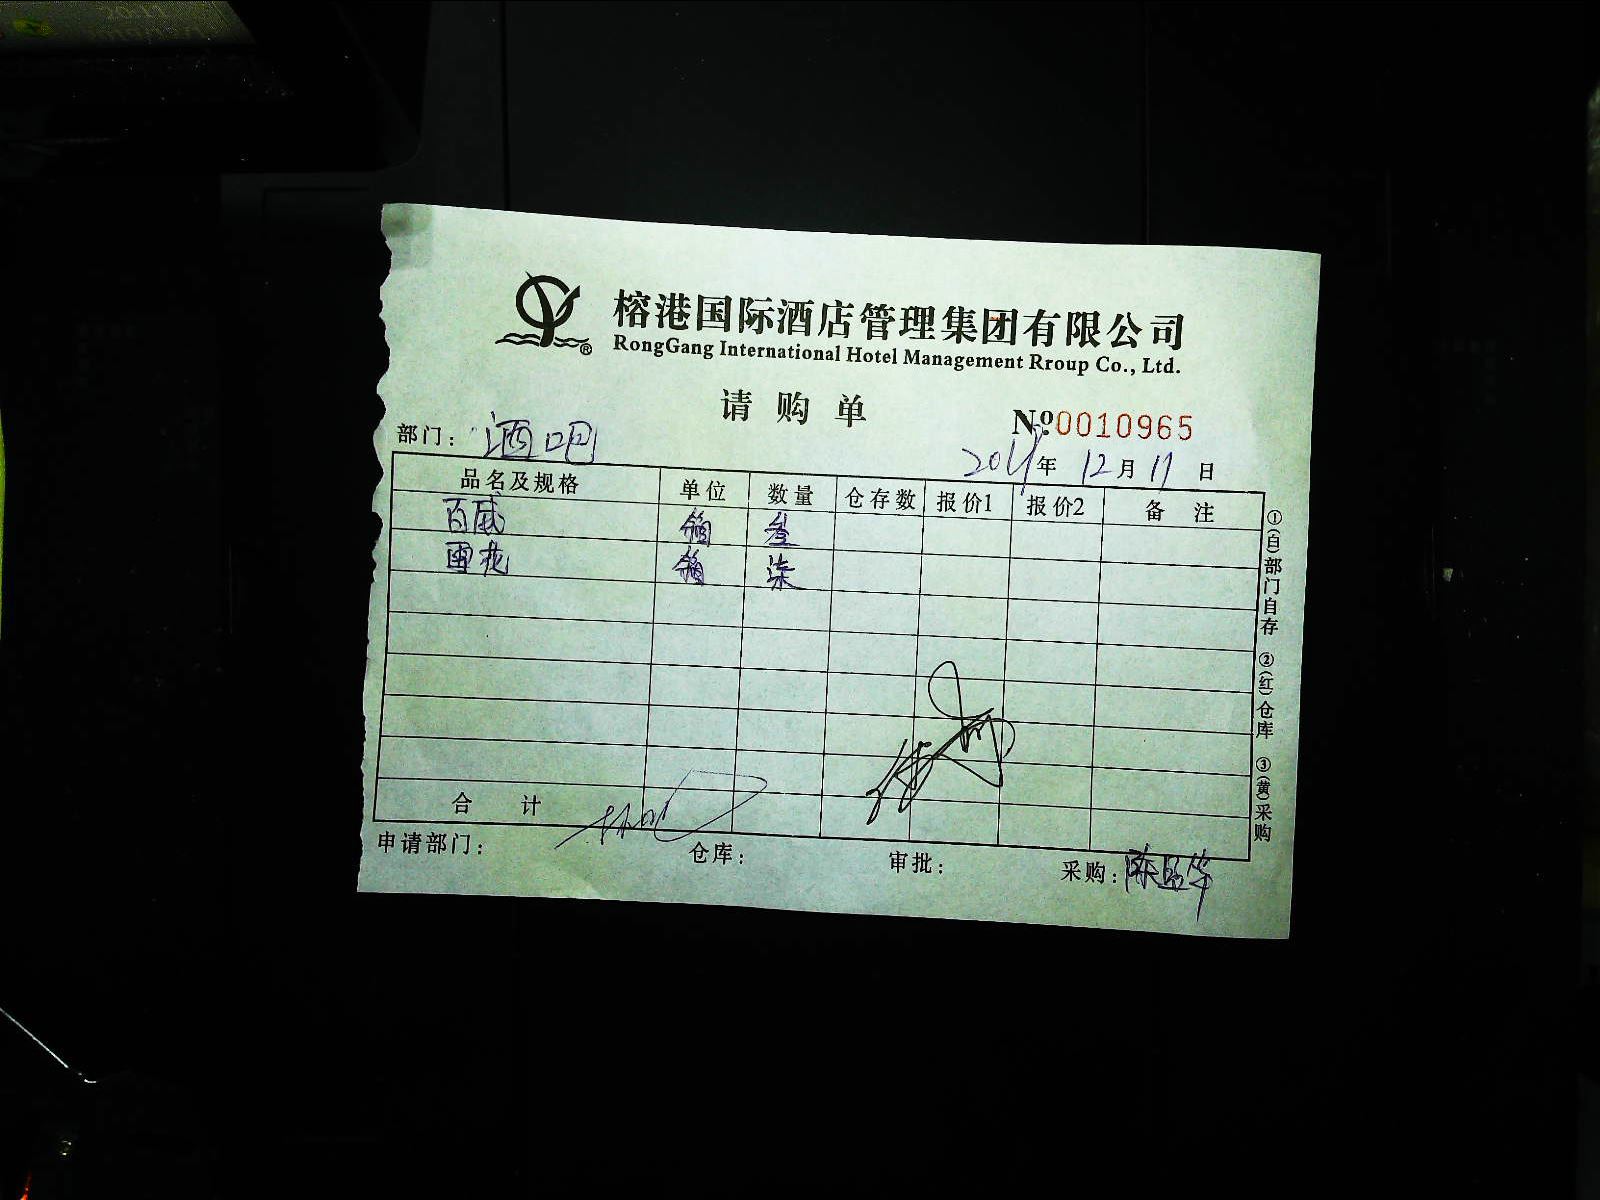 榕港国际酒店管理集团有限公司
RongGang International Hotel Management Rroup Co., Ltd.
请购单
№:0010965
部门: 酒吧
年 12月11日
品名及规格 单位 数量 仓存数 报价1 报价2 备注
百威 箱 叁
雪花 箱 柒
合计
申请部门: 仓库: 审批: 采购:
①(白)部门自存 ②(红)仓库 ③(黄)采购